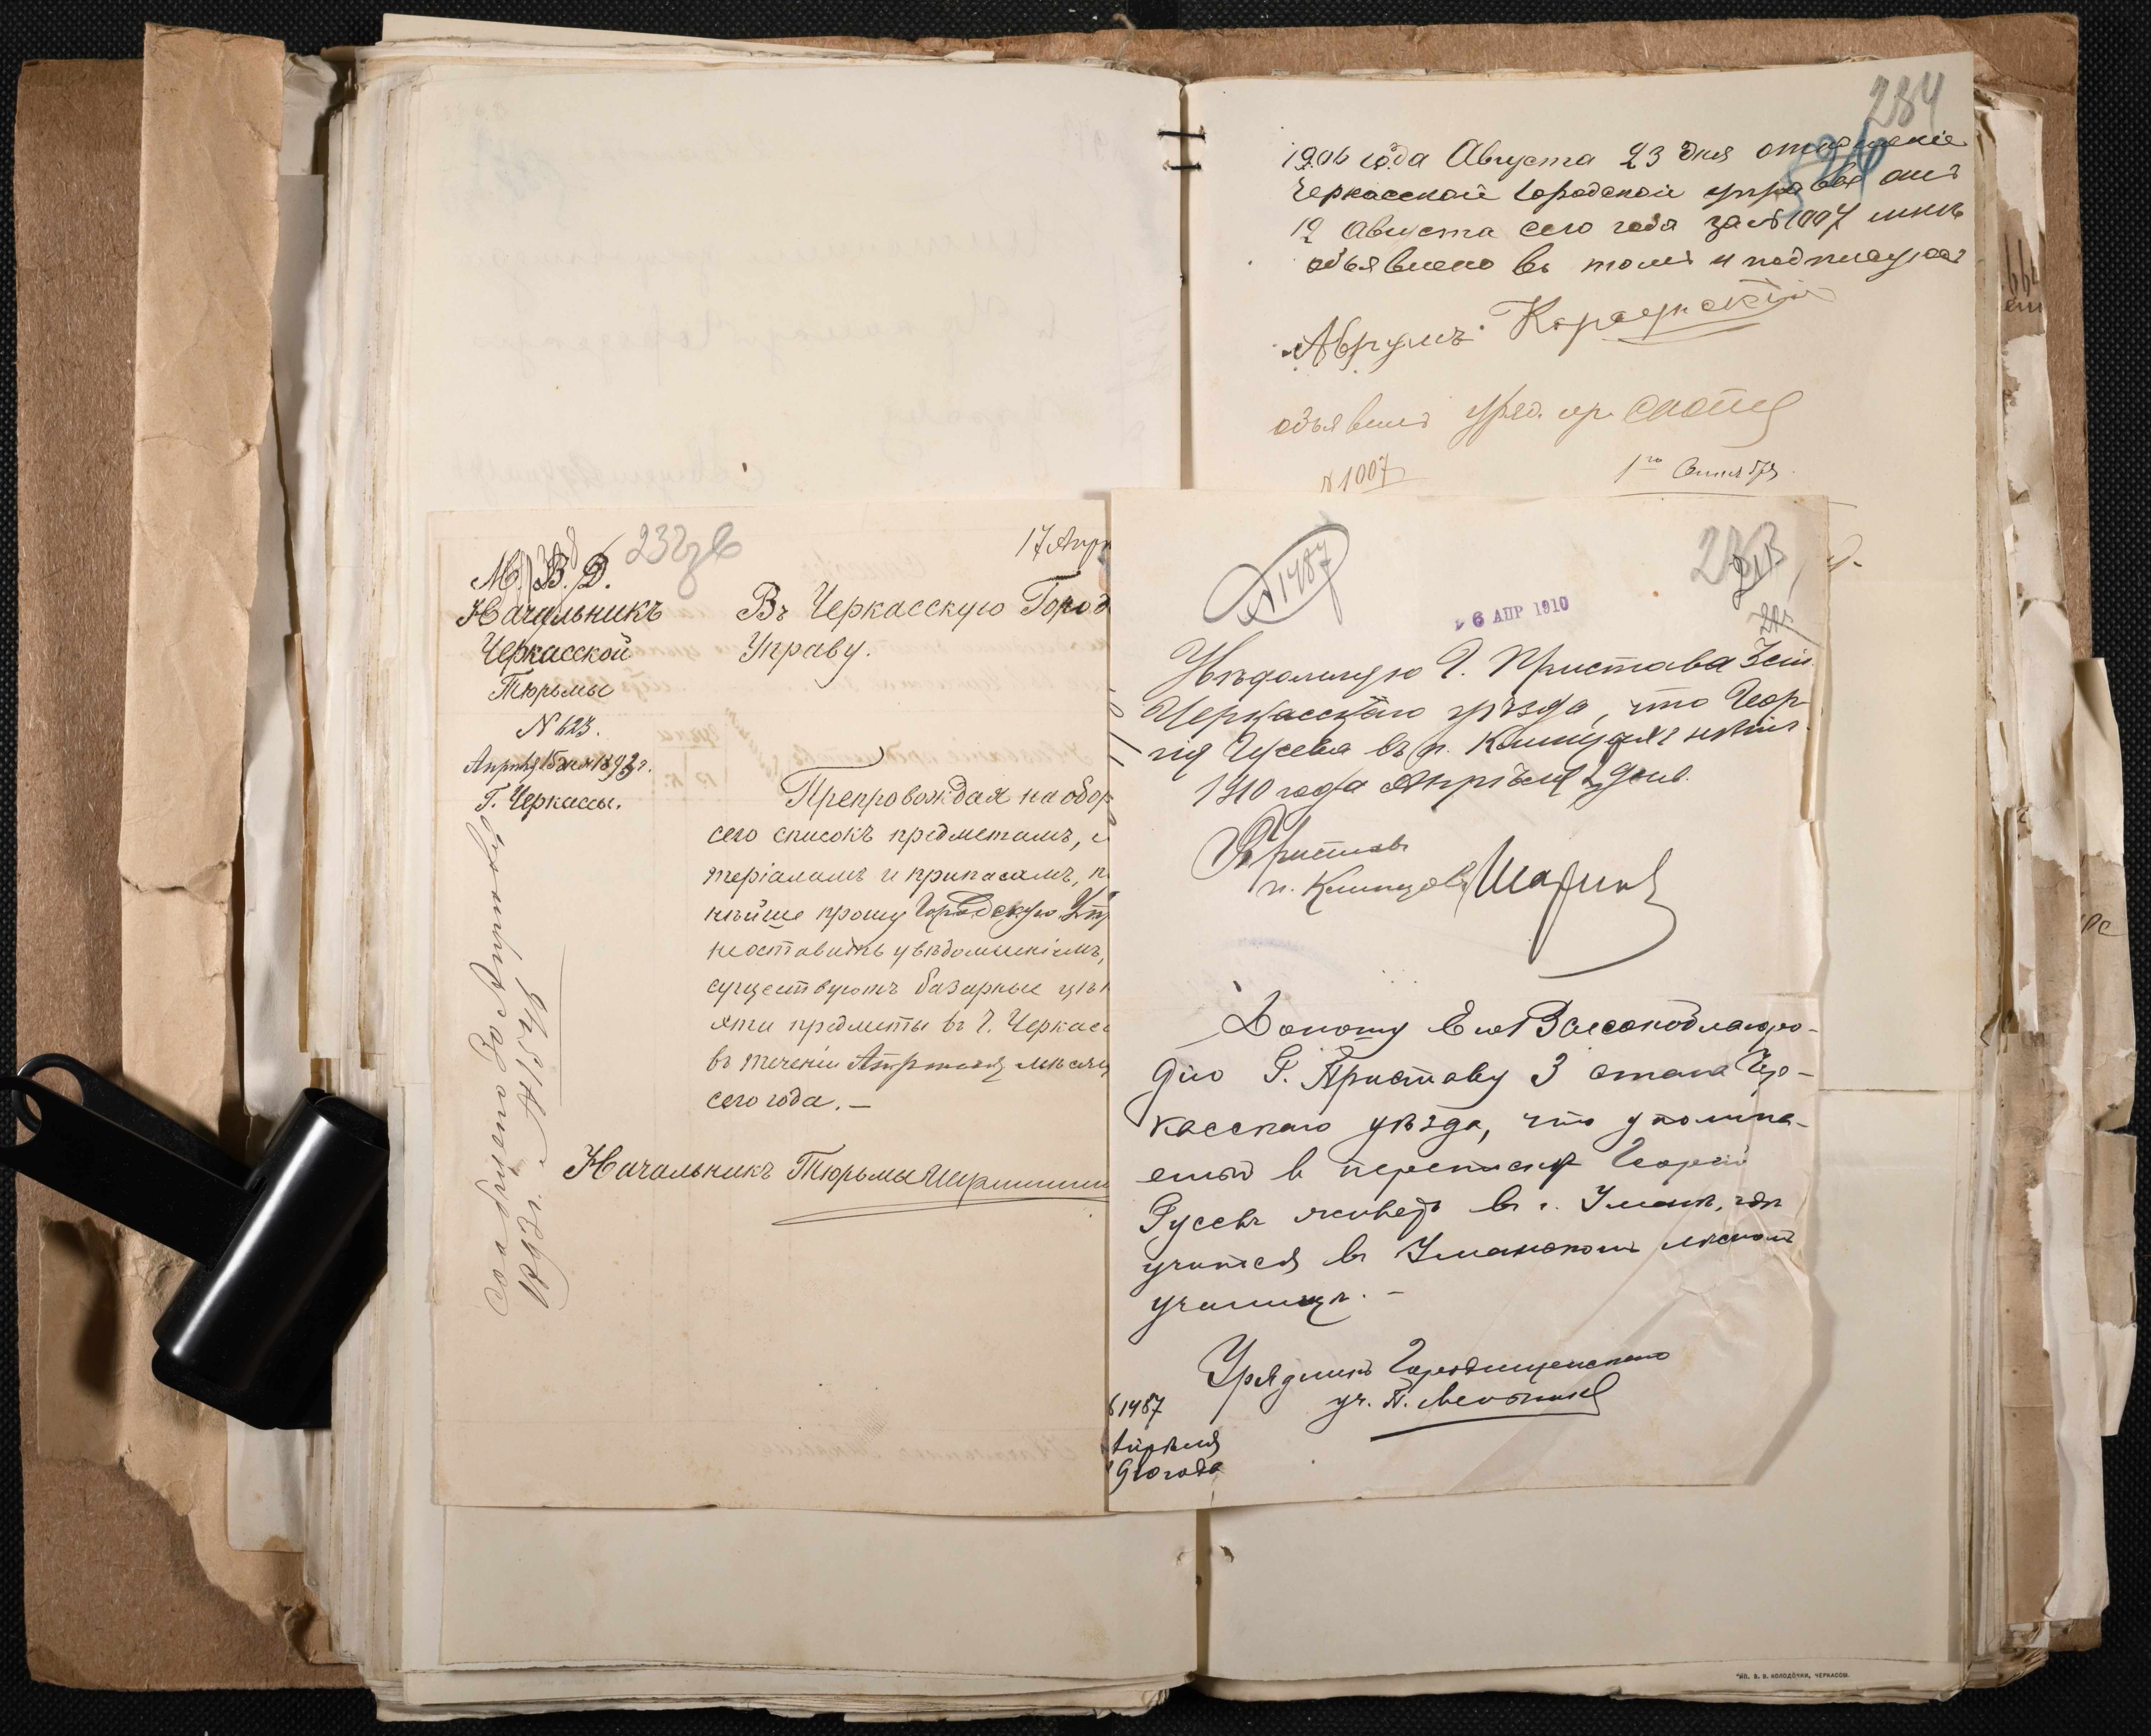 284
1906 года Августа 23 дня отношеніе
Черкасской Городской управы отъ
19 Августа сего года за № 1007 мнѣ
объявлено въ томъ и подписуюсь
Аврумъ
объявилъ уряд.
№ 1007
1го Сентября
М. В. Д.
Начальникъ
Черкасской
Тюрьмы
№ 623.
Апрѣля 15 дня 1893 г.
Г. Черкассы.
17 Апр
Въ Черкасскую Город
Управу.
Препровождая на обор
сего списокъ предметамъ,
теріаламъ и припасамъ, п
нѣйше прошу Городскую Упр
не оставить увѣдомленіемъ,
существуютъ базарные цѣн
эти предметы въ Г. Черкас
въ теченіи Апрѣля мѣсяц
сего года. —
Начальникъ Тюрьмы
Сообщено 30 Апрѣля
1893 г. № 1576
№ 1487
6 АПР 1910
Увѣдомляю Г. Пристава 3 ст.
Черкасскаго уѣзда, что Геор-
гія Гусева въ п. нѣтъ.
1910 года Апрѣля 2 дня.
Приставъ
п.
Доношу Его Высокоблагоро-
дію Г. Приставу 3 стана Чер-
касскаго уѣзда, что упомина-
емый в перепискѣ Георгій
Гусевъ живетъ въ г. Умани, гдѣ
учится въ Уманскомъ лѣсном
училищѣ. —
Урядникъ Городищенскаго
уч. П. Мельник
1487
Апрѣля
1910 года
ТИП. В. В. КОЛОДОЧКИ, ЧЕРКАССЫ.